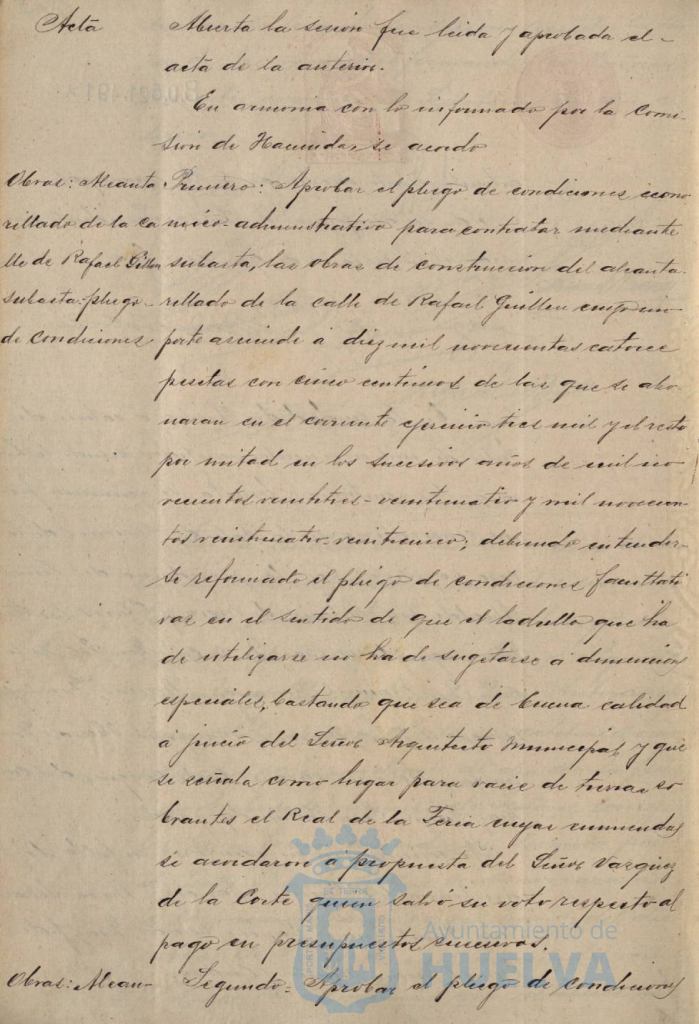 Acta
Abierta la sesión fue leida y aprobada el
acta de la anterior.
En armonia con lo informado por la Comi
sion de Hacienda, se acordo
Obras: Alcanta
rillado de la ca
lle de Rafael Guillen
subasta-pliego
de condiciones.
Primero: Aprobar el pliego de condiciones econo
mico-administrativo para contratar mediante
subasta, las obras de construccion del alcanta
rillado de la calle de Rafael Guillen cuyo im
porte asciende á diez mil novecientas catorce
pesetas con cinco centimos de las que se abo
naran en el corriente ejercicio tres mil y el resto
por mitad en los sucesivos años de mil no
vecientos veintitres-veinticuatro y mil novecien
tos veinticuatro-veinticinco; debiendo entender
se reformado el pliego de condiciones facultati
vas en el sentido de que el ladrillo que ha
de utilizarse no ha de sugetarse á dimensiones
especiales, bastando que sea de buena calidad
á juicio del Señor Arquitecto Municipal y que
se señala como lugar para vacie de tierras so
brantes el Real de la Feria cuyas enmiendas
se acordaron á propuesta del Señor Vazquez
de la Corte quien salvó su voto respecto al
pago en presupuestos sucesivos.
Obras: Alcan-
Segundo: Aprobar el pliego de condiciones
Ayuntamiento de
HUELVA